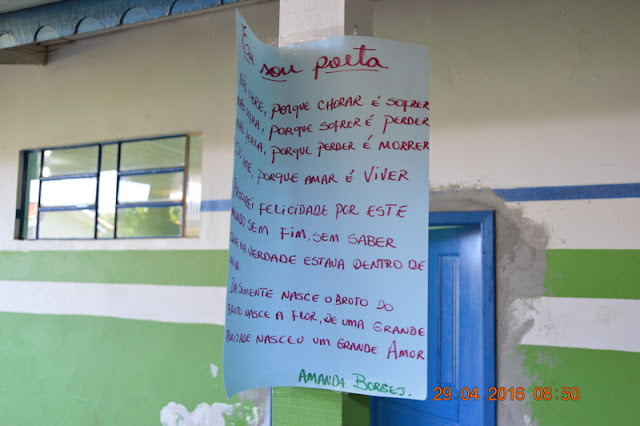 Eu sou poeta
Não chore, porque chorar é sofrer
porque sofrer é perder
porque perder é morrer
porque amar é viver
felicidade por este
mundo sem fim. Sem saber
que na verdade estava dentro de
mim.
Da semente nasce o broto do
broto nasce a flor, de uma grande
amizade nasceu um grande Amor
Amanda Borges.
29.04.2016 08:50